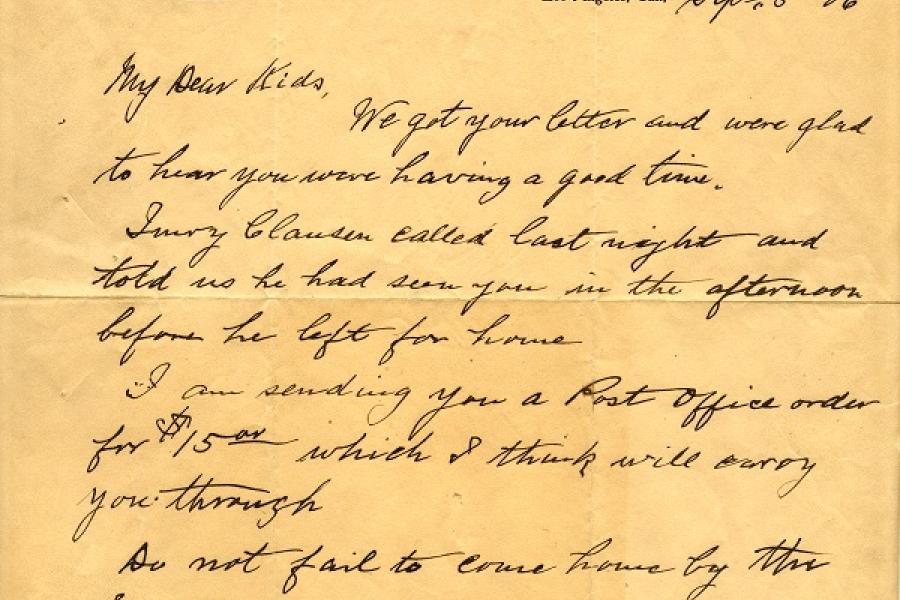 Los Angeles, Cal., Sept. 6 06
My Dear Kids,
We got your letter and were glad
to hear you were having a good time.
Clausen called last night and
told us he had seen you in the afternoon
before he left for home
I am sending you a Post Office order
for $15 00 which I think will carry
you through
Do not fail to come home by the